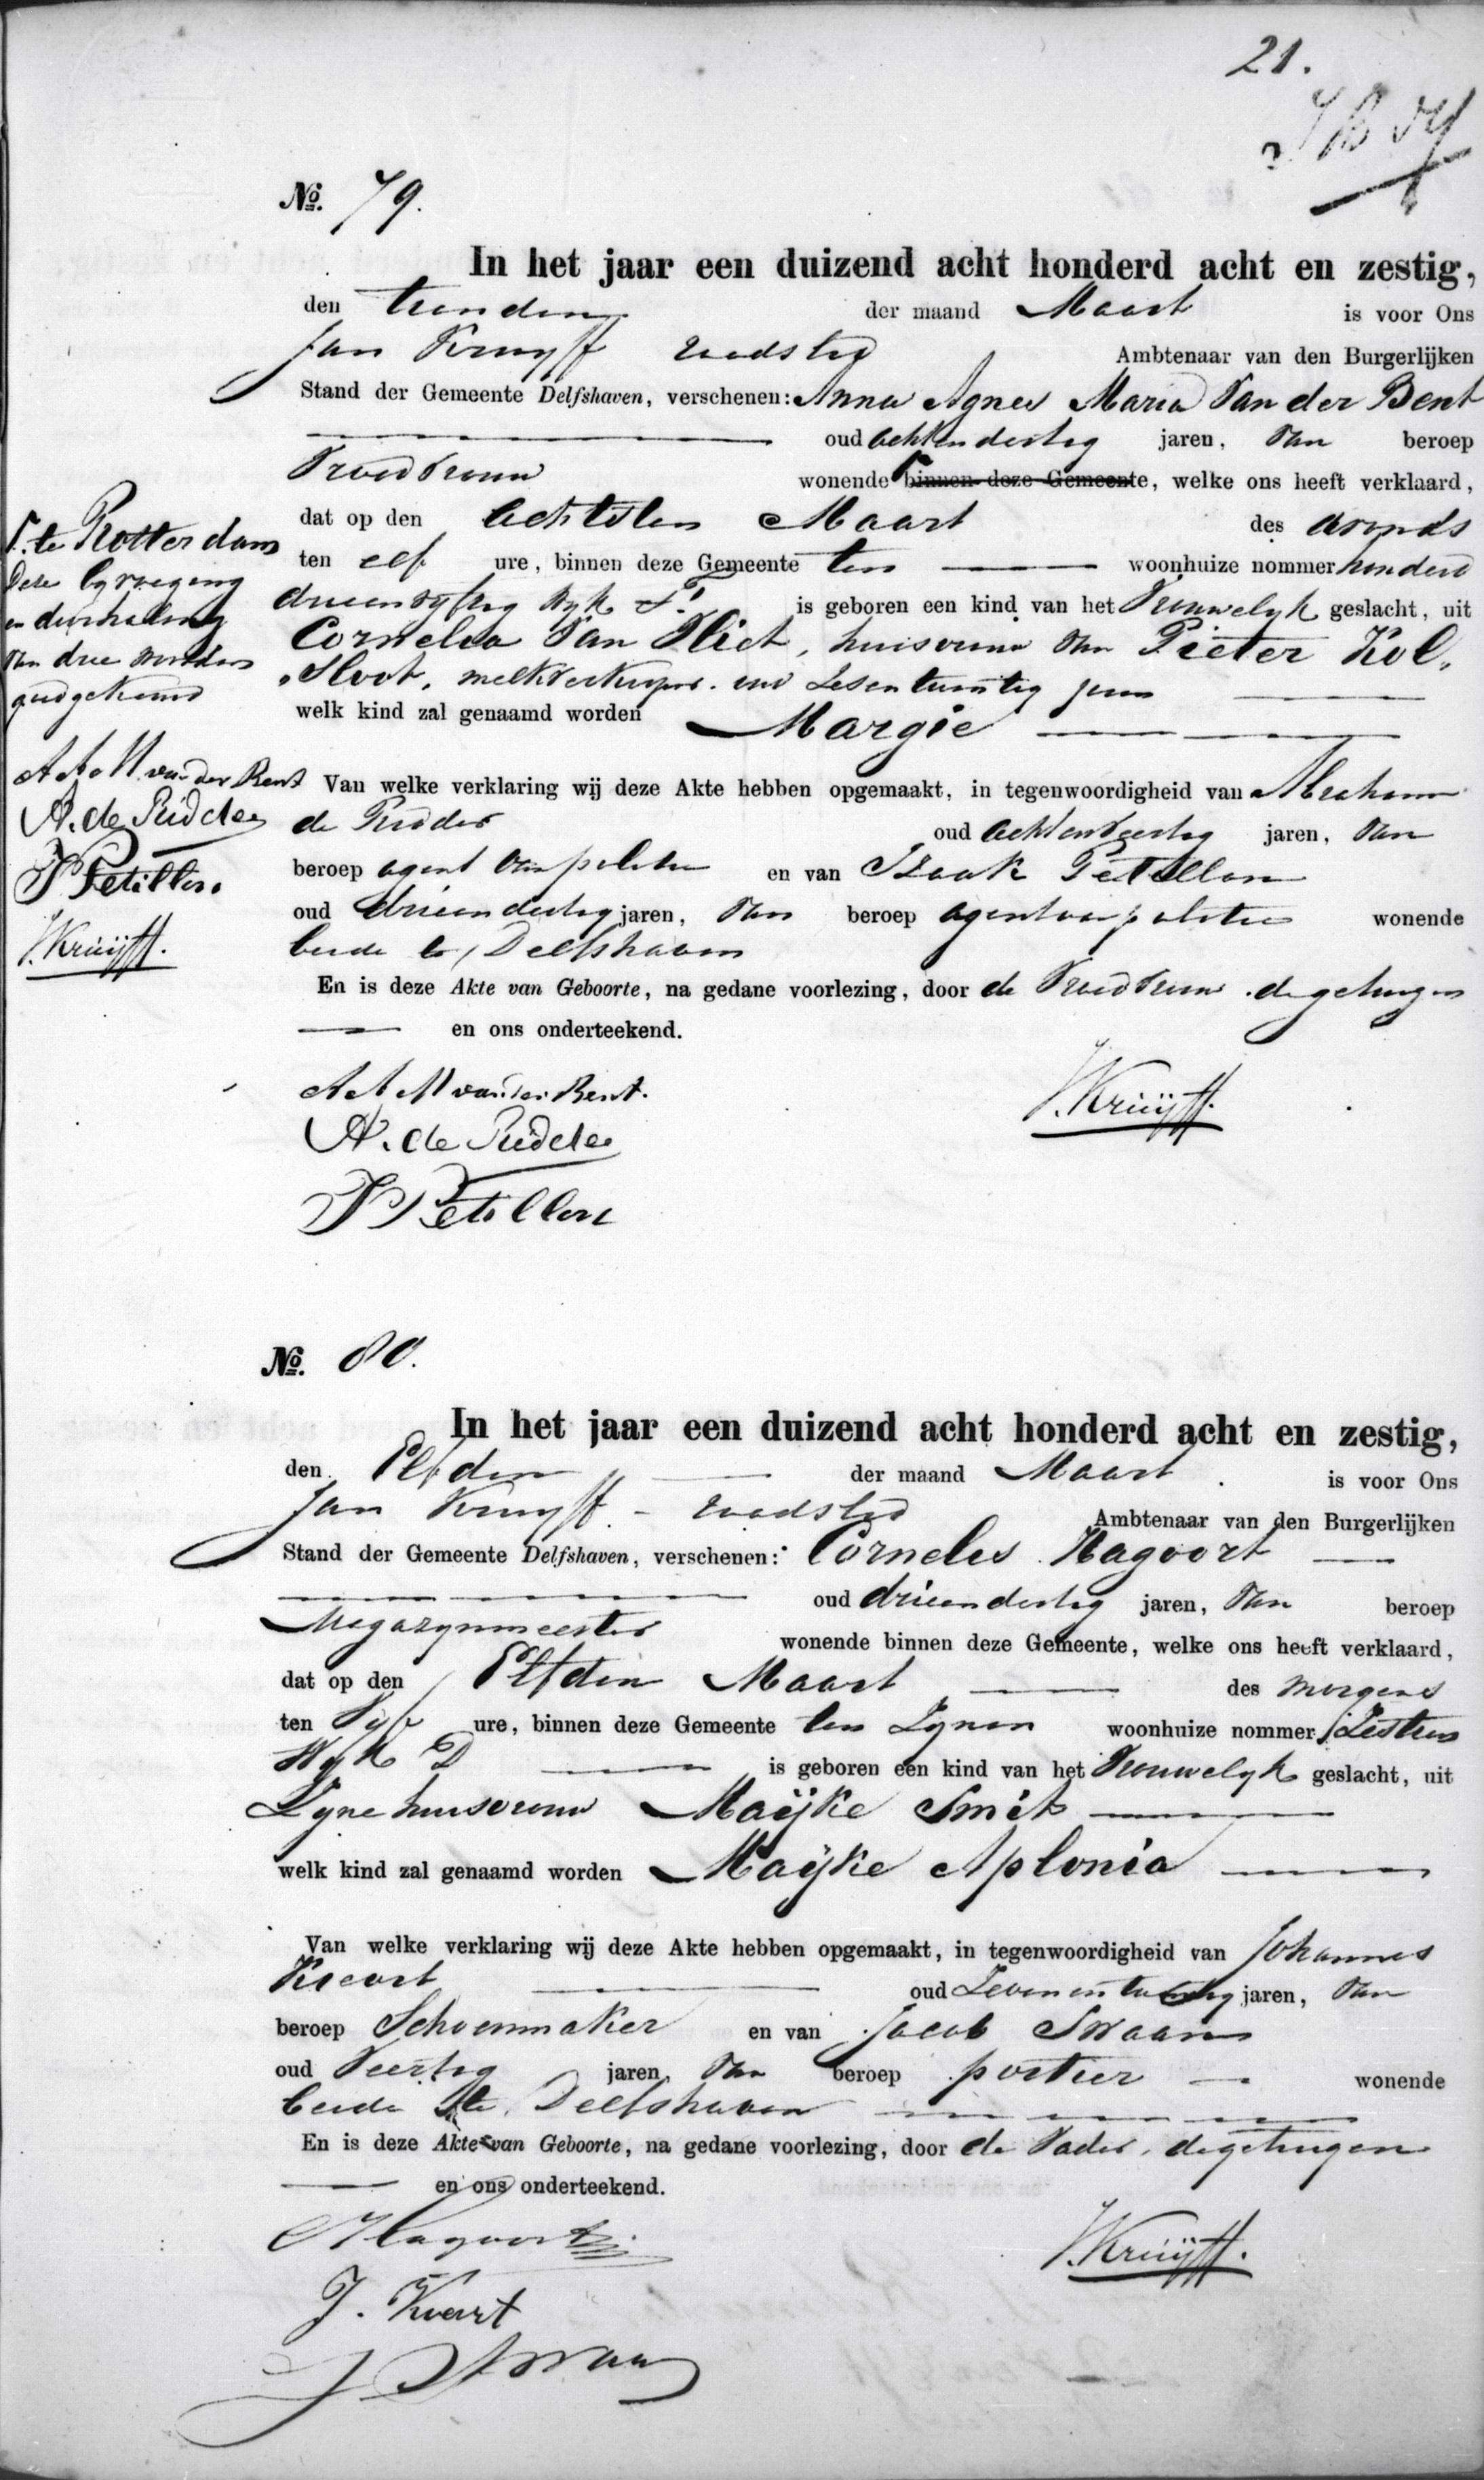 21.
No. 79.
In het jaar een duizend acht honderd acht en zestig,
den tienden der maand Maart is voor Ons
Jan Kruijff raadslid Ambtenaar van den Burgerlijken
Stand der Gemeente Delfshaven, verschenen: Anna Agnes Maria Van der Bent
oud achtendertig jaren, Van beroep
Vroedvrouw wonende binnen deze Gemeente, welke ons heeft verklaard,
dat op den Achtsten Maart des avonds
ten elf ure, binnen deze Gemeente ten woonhuize nommer honderd
drieenvijftig Wijk F. is geboren een kind van het Vrouwelijk geslacht, uit
Cornelia Van Vliet, huisvrouw van Pieter Kol-
sloot, melkverkooper oud zesentwintig jaren
welk kind zal genaamd worden Margie
Van welke verklaring wij deze Akte hebben opgemaakt, in tegenwoordigheid van Abraham
de Ridder oud achtenveertig jaren, Van
beroep agent van politie en van Izaak Petillon
oud drieendertig jaren, Van beroep agent van politie wonende
beide te Delfshaven
En is deze Akte van Geboorte, na gedane voorlezing, door de Vroedvrouw de getuigen
en ons onderteekend.
A A M van der Bent.
A. de Ridder
J Petillon
J. Kruijff.
te Rotterdam
Deze bijvoeging
en doorhaling
van drie woorden
goedgekeurd
A A M van der Bent
A. de Ridder
J Petillon.
J. Kruijff.
No. 80.
In het jaar een duizend acht honderd acht en zestig,
den Elfden der maand Maart is voor Ons
Jan Kruijff - raadslid Ambtenaar van den Burgerlijken
Stand der Gemeente Delfshaven, verschenen: Cornelis Hagoort
oud drieendertig jaren, Van beroep
Magazynmeester wonende binnen deze Gemeente, welke ons heeft verklaard,
dat op den Elfden Maart des morgens
ten Vijf ure, binnen deze Gemeente ten Zynen woonhuize nommer Zestien
Wijk D is geboren een kind van het Vrouwelijk geslacht, uit
Zyne huisvrouw Maijke Smit
welk kind zal genaamd worden Maijke Aplonia
Van welke verklaring wij deze Akte hebben opgemaakt, in tegenwoordigheid van Johannes
oud Zevenentwintig jaren, Van
beroep Schoenmaker en van Jacob Swaan
oud Veertig jaren, Van beroep portier wonende
beide te Delfshaven
En is deze Akte van Geboorte, na gedane voorlezing, door de Vader, de getuigen
en ons onderteekend.
C Hagoort
J. Kruijff.
J. Kwart
J Swaan